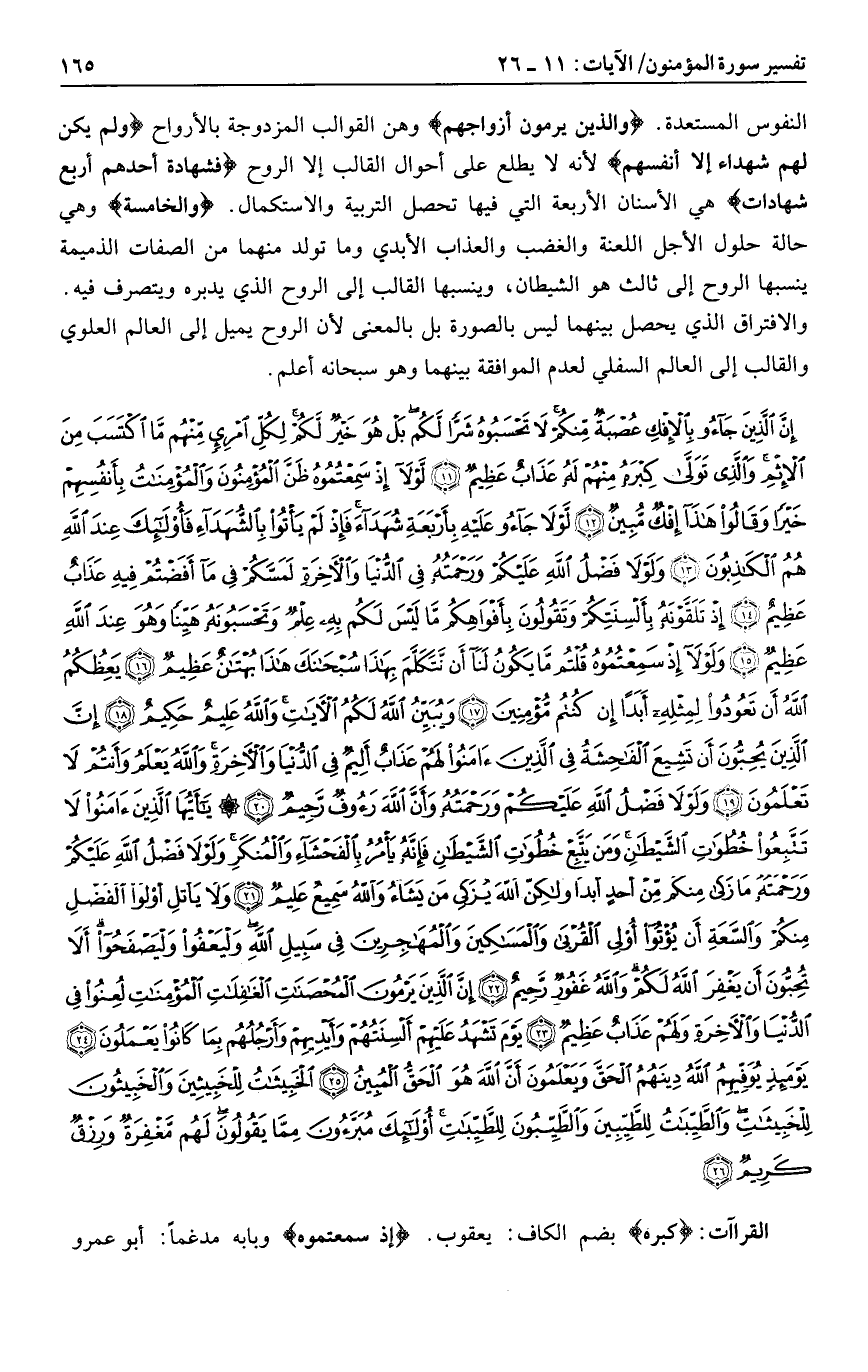 تفسير سورة المؤمنون/ الآيات: ١١ ـ ٢٦
١٦٥
النفوس المستعدة. ﴿والذين يرمون أزواجهم﴾ وهن القوالب المزدوجة بالأرواح ﴿ولم يكن
لهم شهداء إلا أنفسهم﴾ لأنه لا يطلع على أحوال القالب إلا الروح ﴿فشهادة أحدهم أربع
شهادات﴾ هي الأسنان الأربعة التي فيها تحصل التربية والاستكمال. ﴿والخامسة﴾ وهي
حالة حلول الأجل اللعنة والغضب والعذاب الأبدي وما تولد منهما من الصفات الذميمة
ينسبها الروح إلى ثالث هو الشيطان، وينسبها القالب إلى الروح الذي يدبره ويتصرف فيه.
والافتراق الذي يحصل بينهما ليس بالصورة بل بالمعنى لأن الروح يميل إلى العالم العلوي
والقالب إلى العالم السفلي لعدم الموافقة بينهما وهو سبحانه أعلم.
إِنَّ ٱلَّذِينَ جَآءُو بِٱلْإِفْكِ عُصْبَةٌ مِّنكُمْ ۚ لَا تَحْسَبُوهُ شَرًّا لَّكُم ۖ بَلْ هُوَ خَيْرٌ لَّكُمْ ۚ لِكُلِّ ٱمْرِئٍ مِّنْهُم مَّا ٱكْتَسَبَ مِنَ
ٱلْإِثْمِ ۚ وَٱلَّذِى تَوَلَّىٰ كِبْرَهُۥ مِنْهُمْ لَهُۥ عَذَابٌ عَظِيمٌ ﴿١١﴾ لَّوْلَآ إِذْ سَمِعْتُمُوهُ ظَنَّ ٱلْمُؤْمِنُونَ وَٱلْمُؤْمِنَٰتُ بِأَنفُسِهِمْ
خَيْرًا وَقَالُوا۟ هَٰذَآ إِفْكٌ مُّبِينٌ ﴿١٢﴾ لَّوْلَا جَآءُو عَلَيْهِ بِأَرْبَعَةِ شُهَدَآءَ ۚ فَإِذْ لَمْ يَأْتُوا۟ بِٱلشُّهَدَآءِ فَأُو۟لَٰٓئِكَ عِندَ ٱللَّهِ
هُمُ ٱلْكَٰذِبُونَ ﴿١٣﴾ وَلَوْلَا فَضْلُ ٱللَّهِ عَلَيْكُمْ وَرَحْمَتُهُۥ فِى ٱلدُّنْيَا وَٱلْءَاخِرَةِ لَمَسَّكُمْ فِى مَآ أَفَضْتُمْ فِيهِ عَذَابٌ
عَظِيمٌ ﴿١٤﴾ إِذْ تَلَقَّوْنَهُۥ بِأَلْسِنَتِكُمْ وَتَقُولُونَ بِأَفْوَاهِكُم مَّا لَيْسَ لَكُم بِهِۦ عِلْمٌ وَتَحْسَبُونَهُۥ هَيِّنًا وَهُوَ عِندَ ٱللَّهِ
عَظِيمٌ ﴿١٥﴾ وَلَوْلَآ إِذْ سَمِعْتُمُوهُ قُلْتُم مَّا يَكُونُ لَنَآ أَن نَّتَكَلَّمَ بِهَٰذَا سُبْحَٰنَكَ هَٰذَا بُهْتَٰنٌ عَظِيمٌ ﴿١٦﴾ يَعِظُكُمُ
ٱللَّهُ أَن تَعُودُوا۟ لِمِثْلِهِۦٓ أَبَدًا إِن كُنتُم مُّؤْمِنِينَ ﴿١٧﴾ وَيُبَيِّنُ ٱللَّهُ لَكُمُ ٱلْءَايَٰتِ ۚ وَٱللَّهُ عَلِيمٌ حَكِيمٌ ﴿١٨﴾ إِنَّ
ٱلَّذِينَ يُحِبُّونَ أَن تَشِيعَ ٱلْفَٰحِشَةُ فِى ٱلَّذِينَ ءَامَنُوا۟ لَهُمْ عَذَابٌ أَلِيمٌ فِى ٱلدُّنْيَا وَٱلْءَاخِرَةِ ۚ وَٱللَّهُ يَعْلَمُ وَأَنتُمْ لَا
تَعْلَمُونَ ﴿١٩﴾ وَلَوْلَا فَضْلُ ٱللَّهِ عَلَيْكُمْ وَرَحْمَتُهُۥ وَأَنَّ ٱللَّهَ رَءُوفٌ رَّحِيمٌ ﴿٢٠﴾ ۞ يَٰٓأَيُّهَا ٱلَّذِينَ ءَامَنُوا۟ لَا
تَتَّبِعُوا۟ خُطُوَٰتِ ٱلشَّيْطَٰنِ ۚ وَمَن يَتَّبِعْ خُطُوَٰتِ ٱلشَّيْطَٰنِ فَإِنَّهُۥ يَأْمُرُ بِٱلْفَحْشَآءِ وَٱلْمُنكَرِ ۚ وَلَوْلَا فَضْلُ ٱللَّهِ عَلَيْكُمْ
وَرَحْمَتُهُۥ مَا زَكَىٰ مِنكُم مِّنْ أَحَدٍ أَبَدًا وَلَٰكِنَّ ٱللَّهَ يُزَكِّى مَن يَشَآءُ وَٱللَّهُ سَمِيعٌ عَلِيمٌ ﴿٢١﴾ وَلَا يَأْتَلِ أُو۟لُوا۟ ٱلْفَضْلِ
مِنكُمْ وَٱلسَّعَةِ أَن يُؤْتُوٓا۟ أُو۟لِى ٱلْقُرْبَىٰ وَٱلْمَسَٰكِينَ وَٱلْمُهَٰجِرِينَ فِى سَبِيلِ ٱللَّهِ ۖ وَلْيَعْفُوا۟ وَلْيَصْفَحُوٓا۟ ۗ أَلَا
تُحِبُّونَ أَن يَغْفِرَ ٱللَّهُ لَكُمْ ۗ وَٱللَّهُ غَفُورٌ رَّحِيمٌ ﴿٢٢﴾ إِنَّ ٱلَّذِينَ يَرْمُونَ ٱلْمُحْصَنَٰتِ ٱلْغَٰفِلَٰتِ ٱلْمُؤْمِنَٰتِ لُعِنُوا۟ فِى
ٱلدُّنْيَا وَٱلْءَاخِرَةِ وَلَهُمْ عَذَابٌ عَظِيمٌ ﴿٢٣﴾ يَوْمَ تَشْهَدُ عَلَيْهِمْ أَلْسِنَتُهُمْ وَأَيْدِيهِمْ وَأَرْجُلُهُم بِمَا كَانُوا۟ يَعْمَلُونَ ﴿٢٤﴾
يَوْمَئِذٍ يُوَفِّيهِمُ ٱللَّهُ دِينَهُمُ ٱلْحَقَّ وَيَعْلَمُونَ أَنَّ ٱللَّهَ هُوَ ٱلْحَقُّ ٱلْمُبِينُ ﴿٢٥﴾ ٱلْخَبِيثَٰتُ لِلْخَبِيثِينَ وَٱلْخَبِيثُونَ
لِلْخَبِيثَٰتِ ۖ وَٱلطَّيِّبَٰتُ لِلطَّيِّبِينَ وَٱلطَّيِّبُونَ لِلطَّيِّبَٰتِ ۚ أُو۟لَٰٓئِكَ مُبَرَّءُونَ مِمَّا يَقُولُونَ ۖ لَهُم مَّغْفِرَةٌ وَرِزْقٌ
كَرِيمٌ ﴿٢٦﴾
القراآت: ﴿كبره﴾ بضم الكاف: يعقوب. ﴿إذ سمعتموه﴾ وبابه مدغماً: أبو عمرو